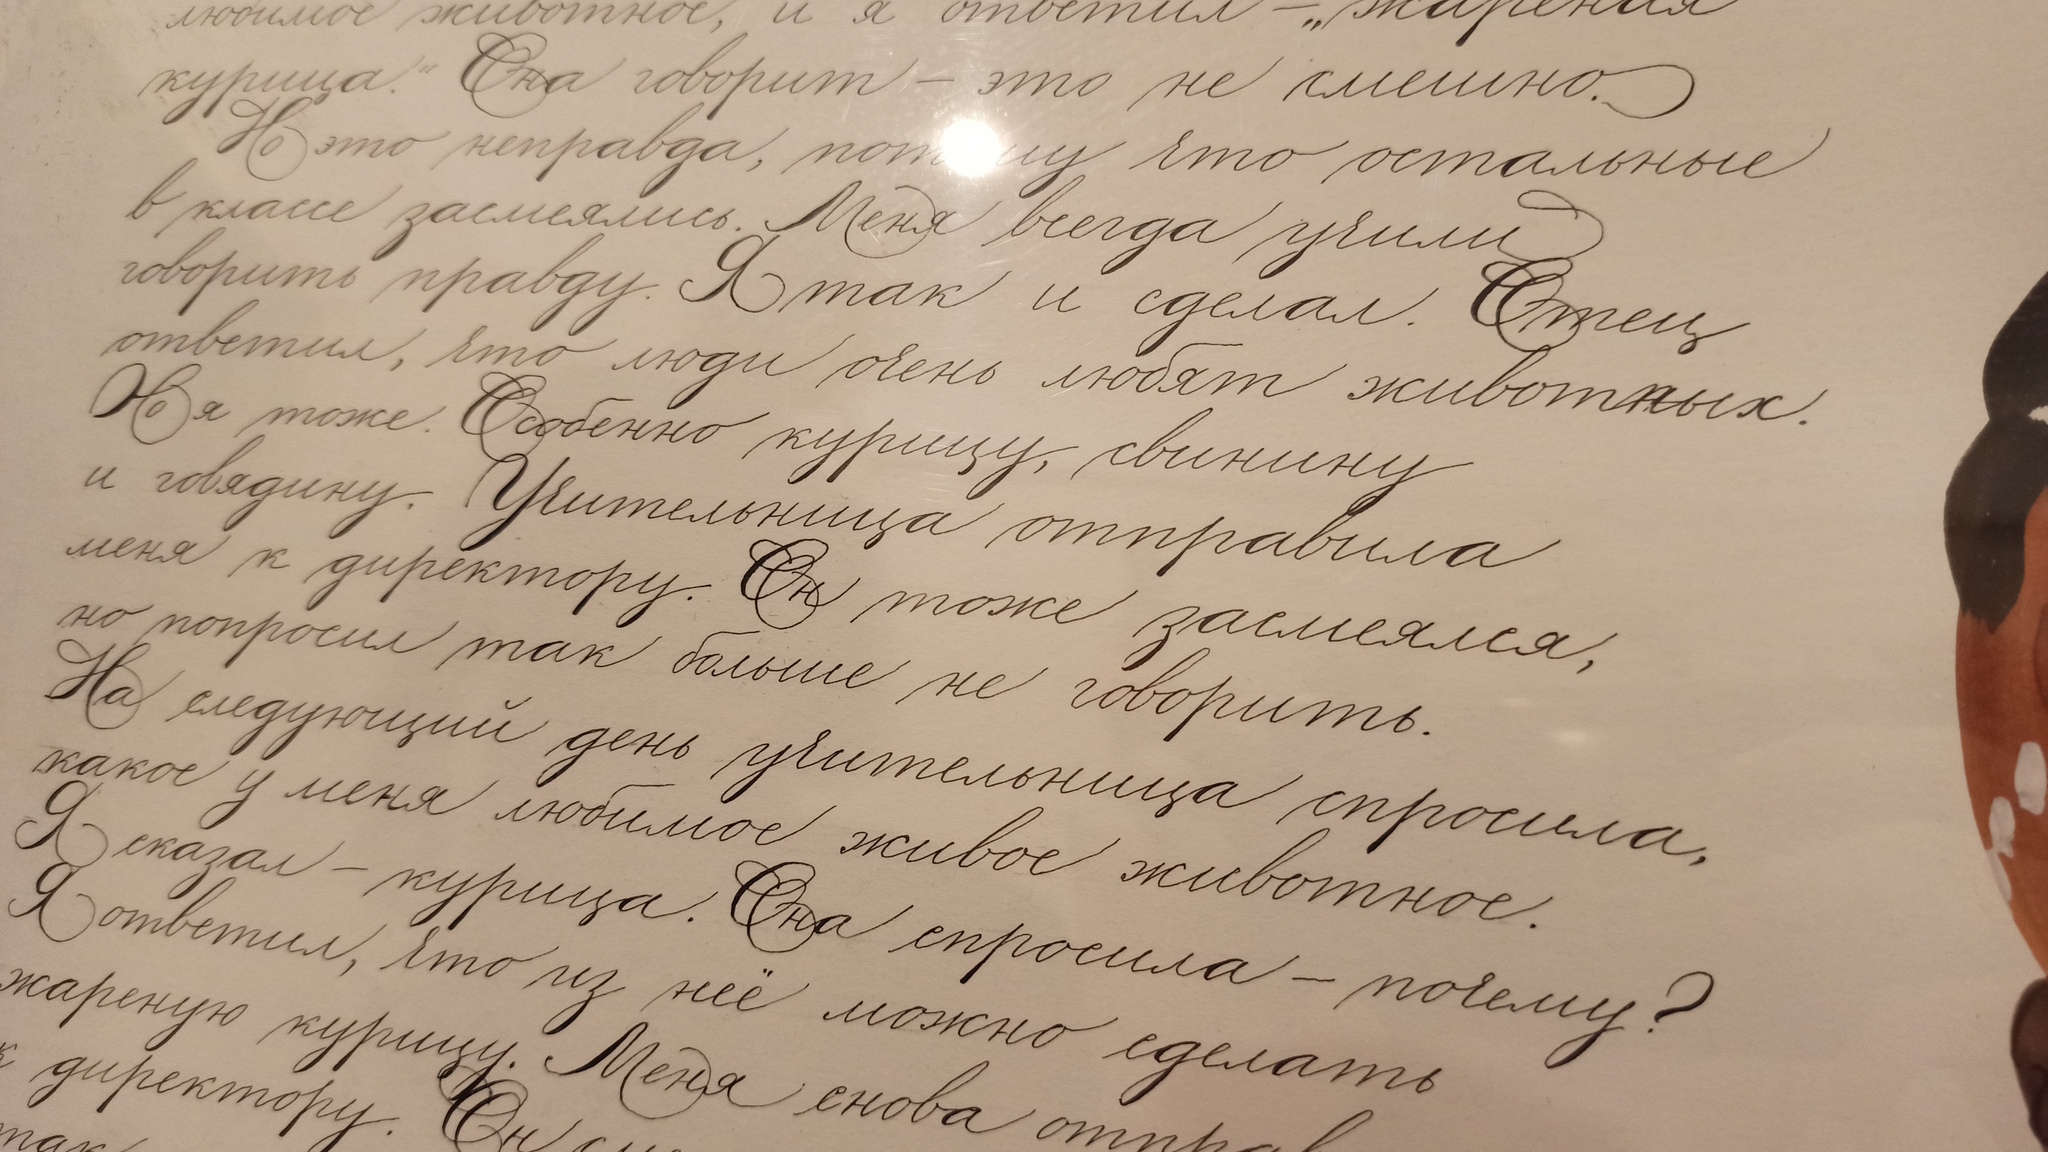 любимое животное, и я ответил – „жареная
курица.“ Она говорит – это не смешно.
Но это неправда, потому что остальные
в классе засмеялись. Меня всегда учили
говорить правду. Я так и сделал. Отец
ответил, что люди очень любят животных.
Но я тоже. Особенно курицу, свинину
и говядину. Учительница отправила
меня к директору. Он тоже засмеялся,
но попросил так больше не говорить.
На следующий день учительница спросила,
какое у меня любимое живое животное.
Я сказал – курица. Она спросила – почему?
Я ответил, что из неё можно сделать
жареную курицу. Меня снова отправ
к директору. Он
так